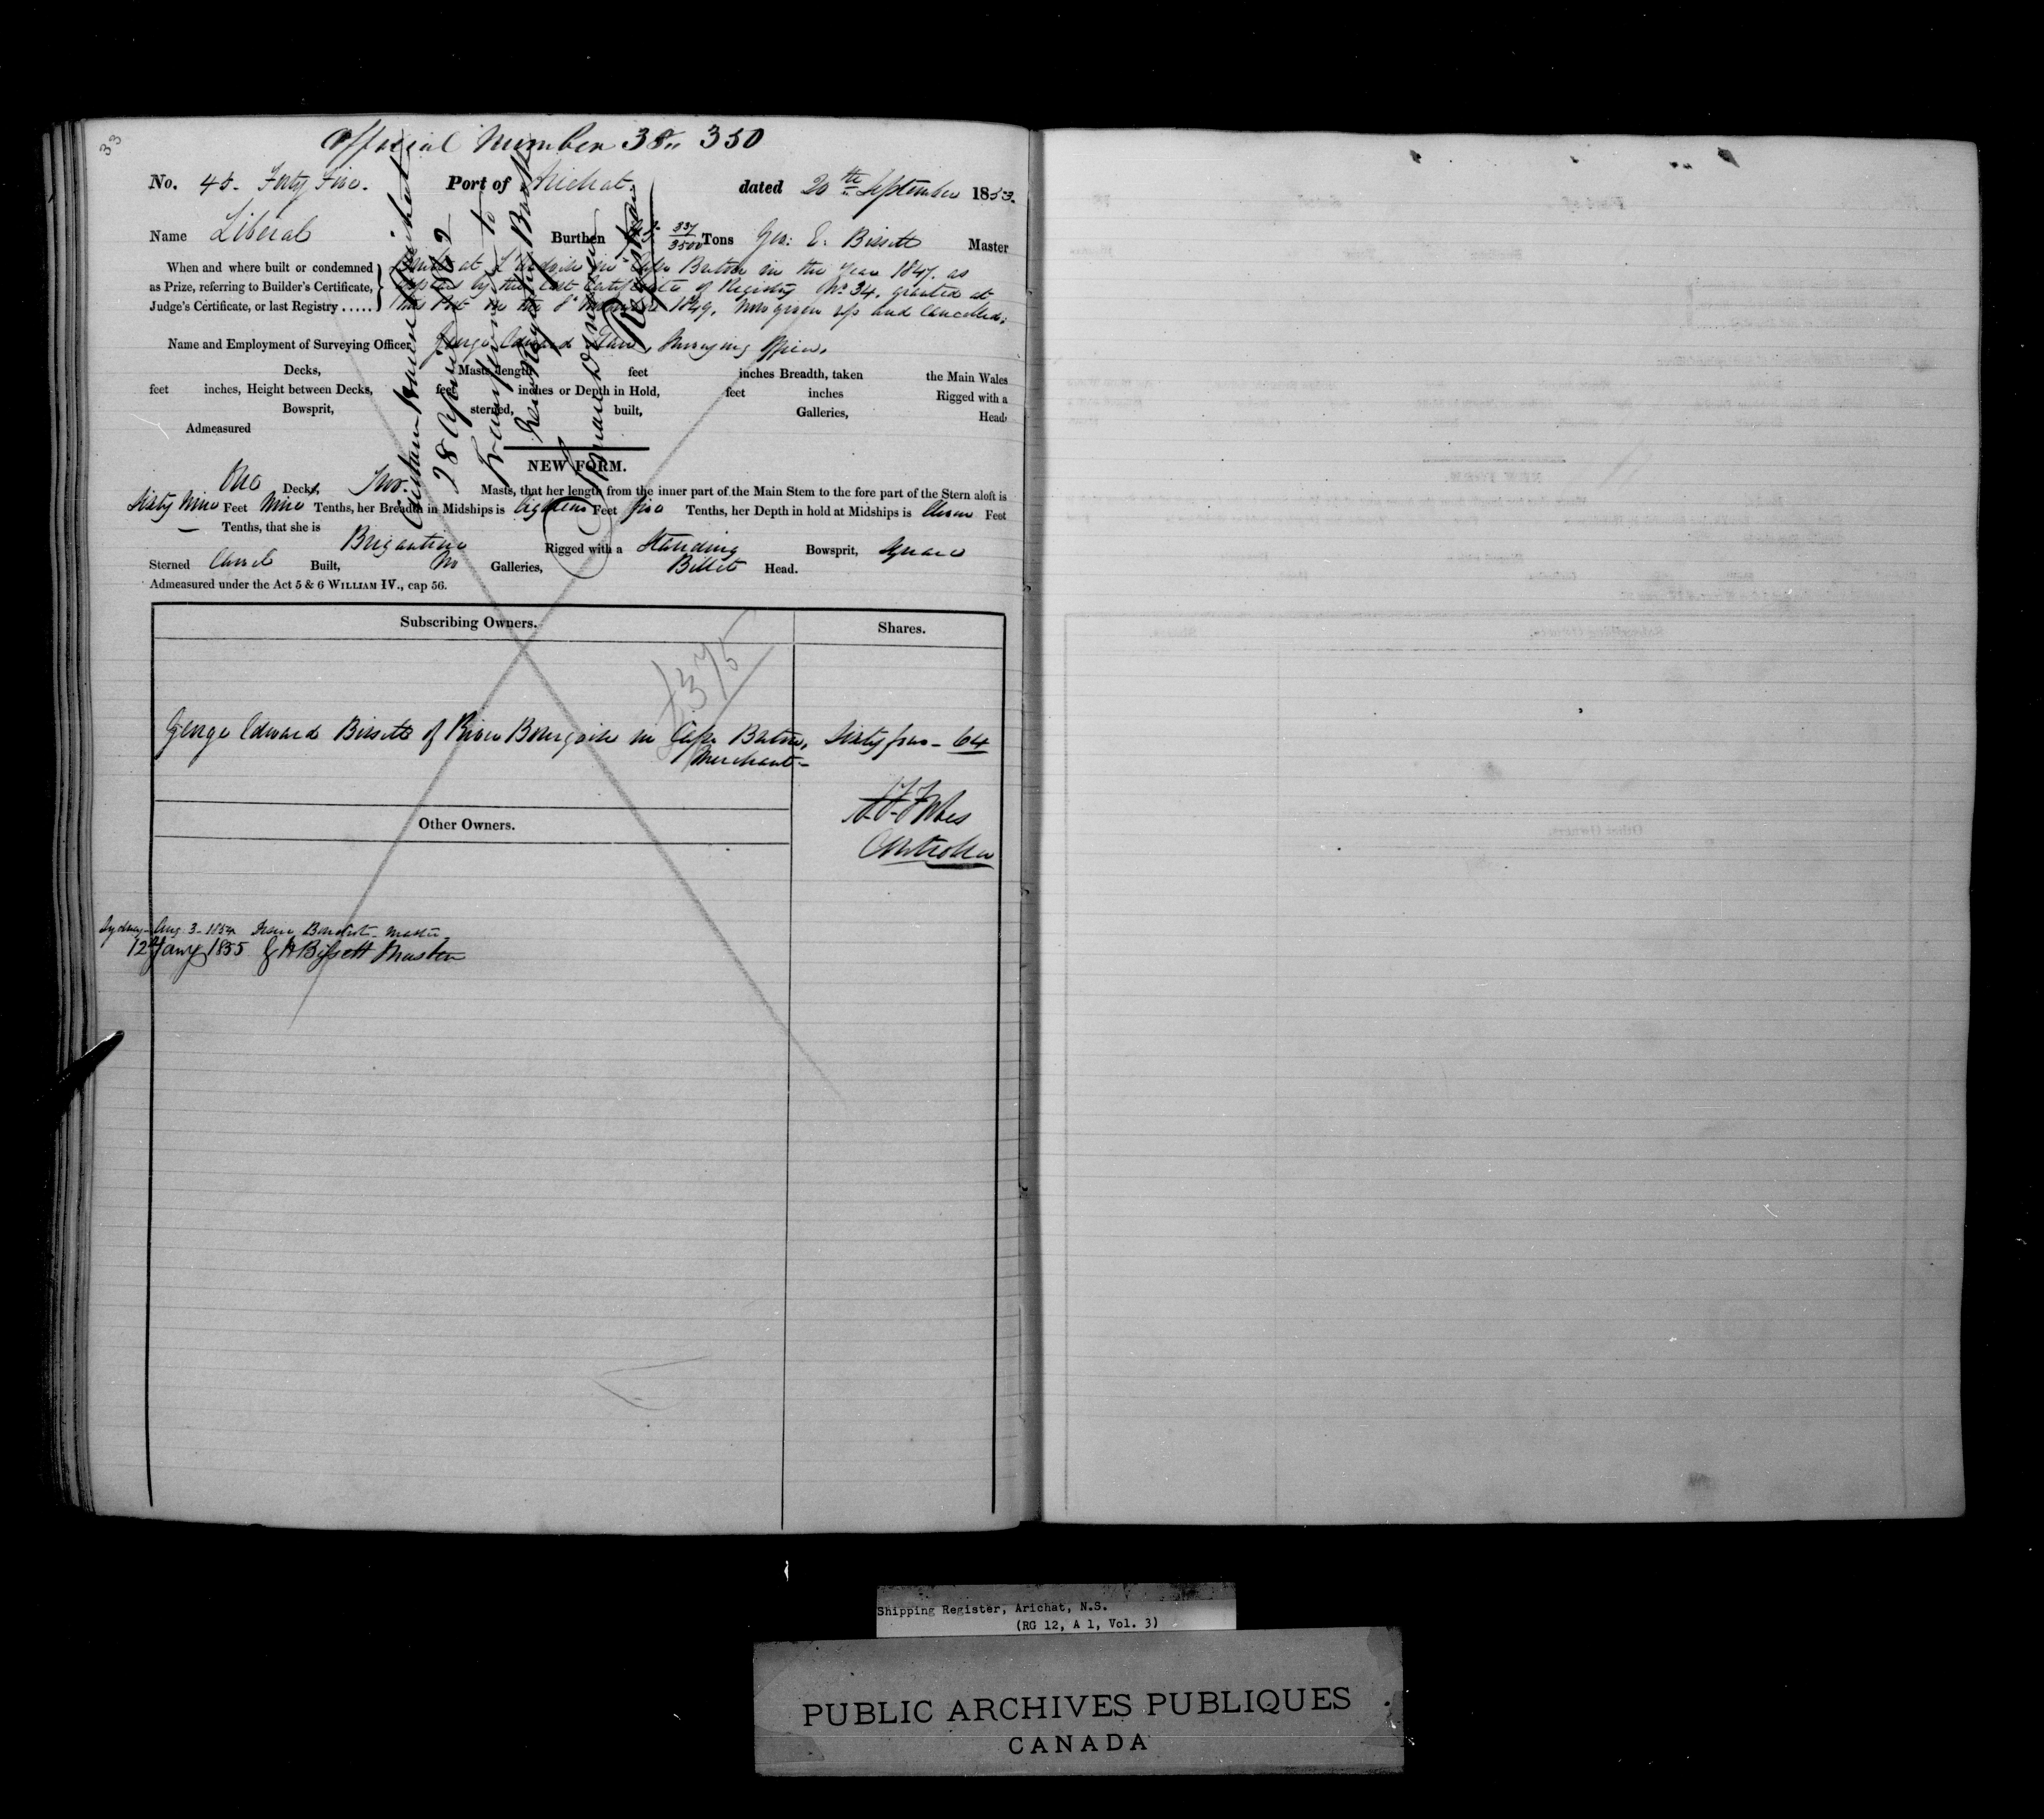 33
Official Number 38,, 350
No. 45. Forty Five. Port of Arichat. dated 20th September 1853.
Name Liberal Burthen 337/3500 Tons Geo: E. Bissett Master
When and where built or condemned
as Prize, referring to Builder's Certificate,
Judge's Certificate, or last Registry .....
Built at L'Ardoise in Cape Breton in the Year 1847. as
appears by the last Certificate of Registry No 34. granted at
this Port on the 1849, now given up and Cancelled:
Name and Employment of Surveying Officer George Edward Surveying Officer.
Decks, Masts, length feet inches Breadth, taken the Main Wales
feet inches, Height between Decks, feet inches or Depth in Hold, feet inches Rigged with a
Bowsprit, sterned, built, Galleries, Head
Admeasured
Custom House Arichat
28 April 1862
Transferred to
new Register Book
Registrar
NEW FORM.
One Deck, Two. Masts, that her length from the inner part of the Main Stem to the fore part of the Stern aloft is
Sixty Nine Feet Nine Tenths, her Breadth in Midships is Eighteen Feet five Tenths, her Depth in hold at Midships is Eleven Feet
— Tenths, that she is Brigantine Rigged with a Standing Bowsprit, Square
Sterned Carvel Built, No Galleries, Billet Head.
Admeasured under the Act 5 & 6 WILLIAM IV., cap 56.
Subscribing Owners. Shares.
£375
George Edward Bissett of River Bourgeoise in Cape Breton, Sixty four - 64
Merchant -
Controller
Other Owners.
Sydney - Aug. 3 - 1854 Benoist - Master.
12th Jany 1855 Bissett Master
Shipping Register, Arichat, N.S.
(RG 12, A 1, Vol. 3)
PUBLIC ARCHIVES PUBLIQUES
CANADA